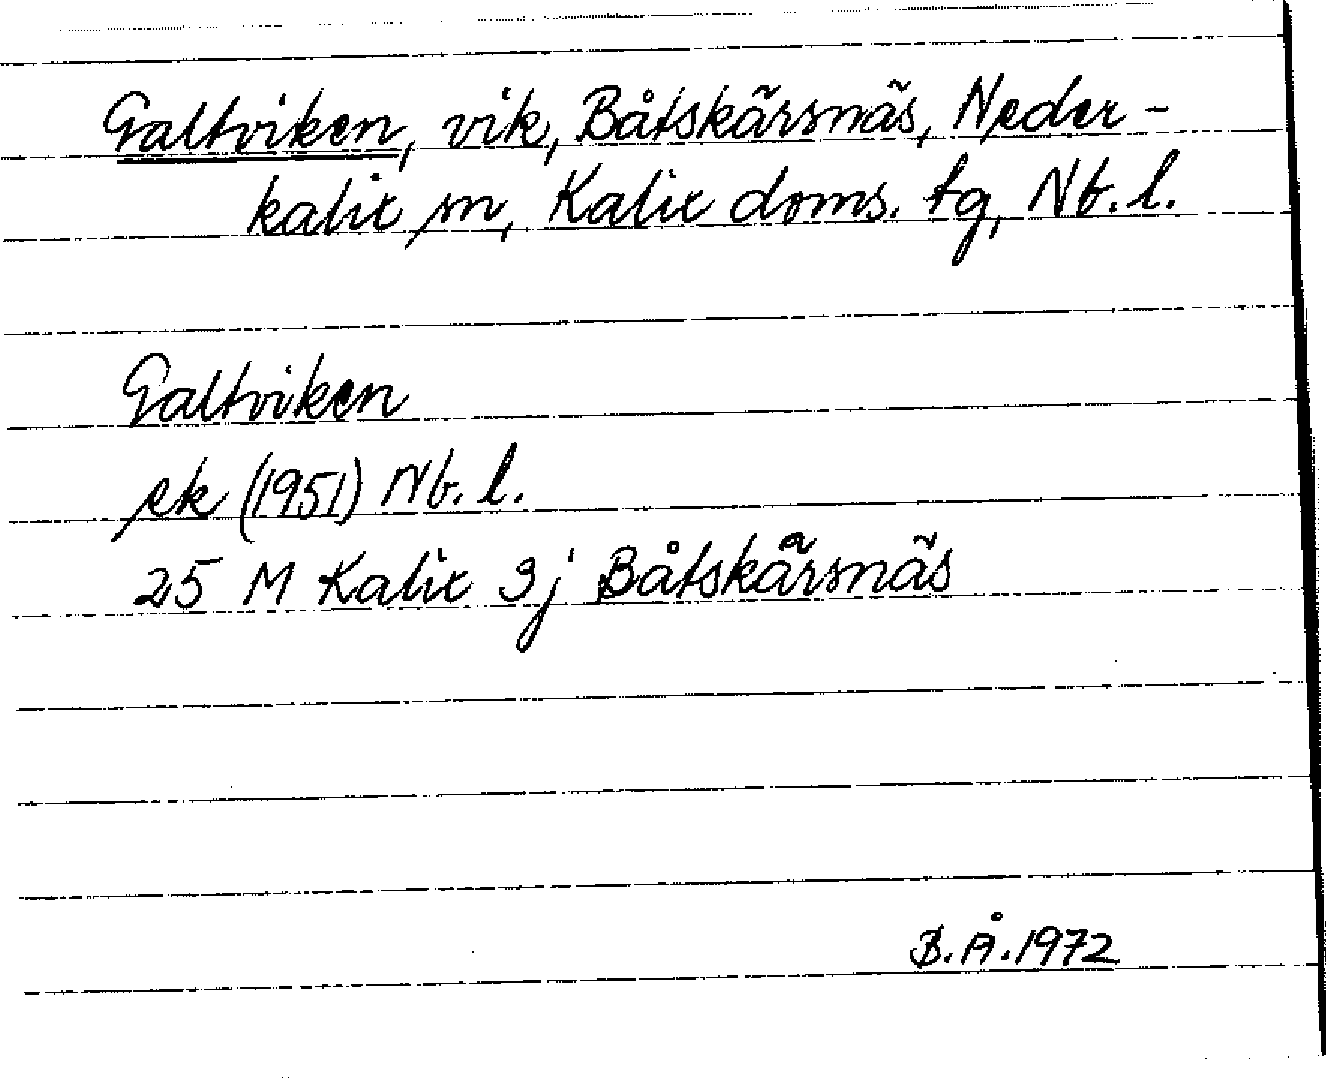 Galtviken, vik, Båtskärsnäs, Neder-
kalix sn, Kalix doms. tg, Nb. l.
Galtviken
ek (1951) Nb. l.
25 M Kalix 3j Båtskärsnäs
B.Å.1972